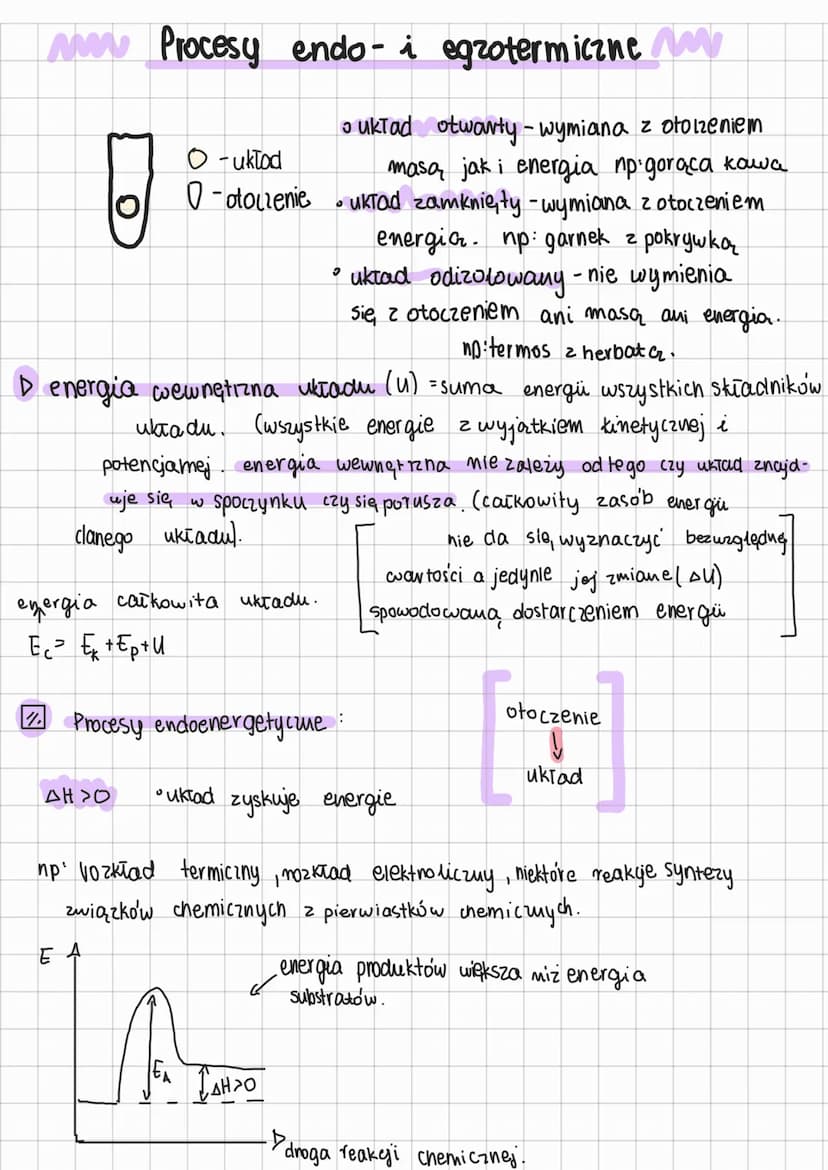 Procesy endo- i egzotermiczne
- układ
- otoczenie
układ otwarty - wymiana z otoczeniem
masą jak i energia np: gorąca kawa
układ zamknięty - wymiana z otoczeniem
energia. np: garnek z pokrywką
układ odizolowany - nie wymienia
się z otoczeniem ani masą ani energia.
np: termos z herbatą.
energia wewnętrzna układu (U) = suma energii wszystkich składników
układu. (wszystkie energie z wyjątkiem kinetycznej i
potencjalnej. energia wewnętrzna nie zależy od tego czy układ znajd-
uje się w spoczynku czy się porusza. (całkowity zasób energii
danego układu).
nie da się wyznaczyć bezwzględnej
wartości a jedynie jej zmianę (ΔU)
spowodowaną dostarczeniem energii
energia całkowita układu.
Ec = Ek + Ep + U
Procesy endoenergetyczne:
otoczenie
↓
układ
ΔH > 0 • układ zyskuje energie
np: rozkład termiczny, rozkład elektroliczny, niektóre reakcje syntezy
związków chemicznych z pierwiastków chemicznych.
E
energia produktów większa niż energia
substratów.
EA
ΔH > 0
droga reakcji chemicznej.